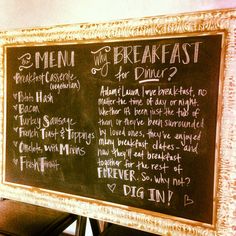 The MENU
Breakfast Casserole
(vegetarian)
Potato Hash
Bacon
Turkey Sausage
French Toast & Toppings
Omelets with Mixins
Fresh Fruit
Why BREAKFAST
for DINNER?
Adam & Laura love breakfast, no
matter the time of day or night.
Whether it's been just the two of
them or they've been surrounded
by loved ones, they've enjoyed
many breakfast dates - and
now they'll eat breakfast
together for the rest of
FOREVER. So, why not?
DIG IN!